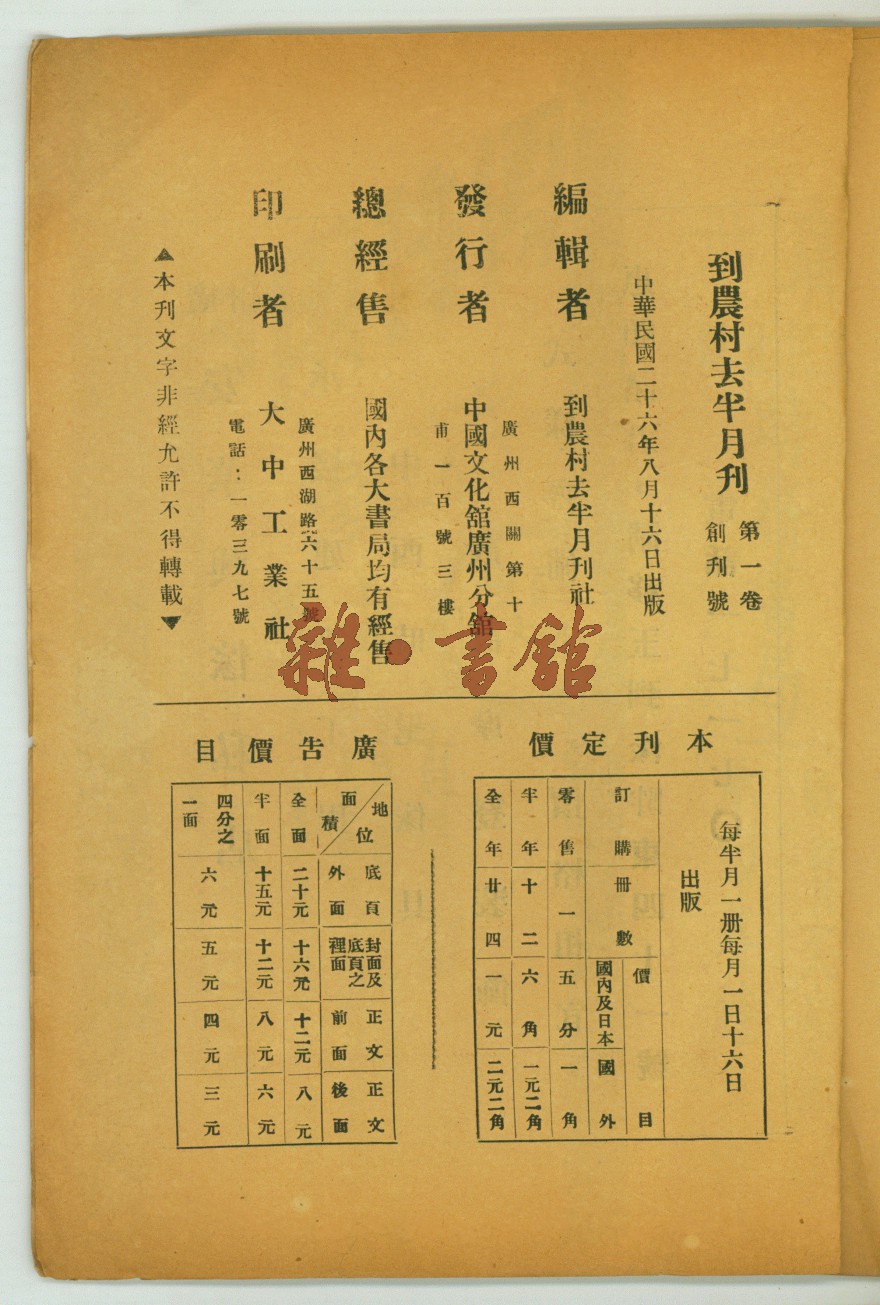 到農村去半月刊
第一卷
創刊號
中華民國二十六年八月十六日出版
編輯者
到農村去半月刊社
發行者
廣州西關第十
中國文化舘廣州分舘
甫一百號三樓
總經售
國內各大書局均有經售
印刷者
廣州西湖路六十五號
大中工業社
電話：一零三九七號
▲本刊文字非經允許不得轉載▼
雜·書舘
本刊定價
每半月一册每月一日十六日
出版
訂購冊數
價目
國內及日本
國外
零售
一
五分
一角
半年
十二
六角
一元二角
全年
廿四
一元
二元二角
廣告價目
地位
面積
底頁外面
封面及底頁之裡面
正文前面
正文後面
全面
二十元
十六元
十二元
八元
半面
十五元
十二元
八元
六元
四分之一面
六元
五元
四元
三元